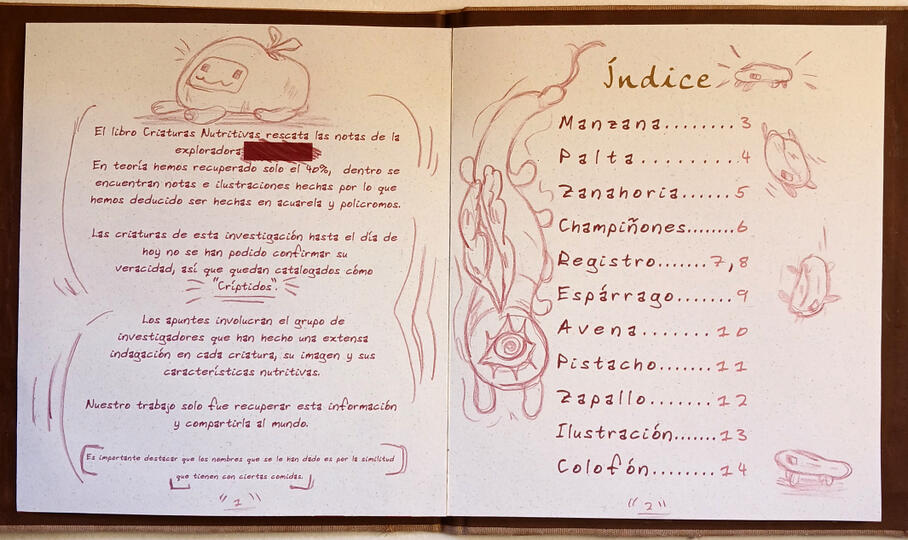 El libro Criaturas Nutritivas rescata las notas de la
exploradora
En teoría hemos recuperado solo el 40%, dentro se
encuentran notas e ilustraciones hechas por lo que
hemos deducido ser hechas en acuarela y policromos.
Las criaturas de esta investigación hasta el día de
hoy no se han podido confirmar su
veracidad, así que quedan catalogados cómo
"Críptidos".
Los apuntes involucran el grupo de
investigadores que han hecho una extensa
indagación en cada criatura, su imagen y sus
características nutritivas.
Nuestro trabajo solo fue recuperar esta información
y compartirla al mundo.
Es importante destacar que los nombres que se le han dado es por la similitud
que tienen con ciertas comidas.
"1"
Índice
Manzana........3
Palta.........4
Zanahoria.....5
Champiñones.......6
Registro.......7,8
Espárrago.......9
Avena.......10
Pistacho......11
Zapallo.......12
Ilustración......13
Colofón........14
"2"